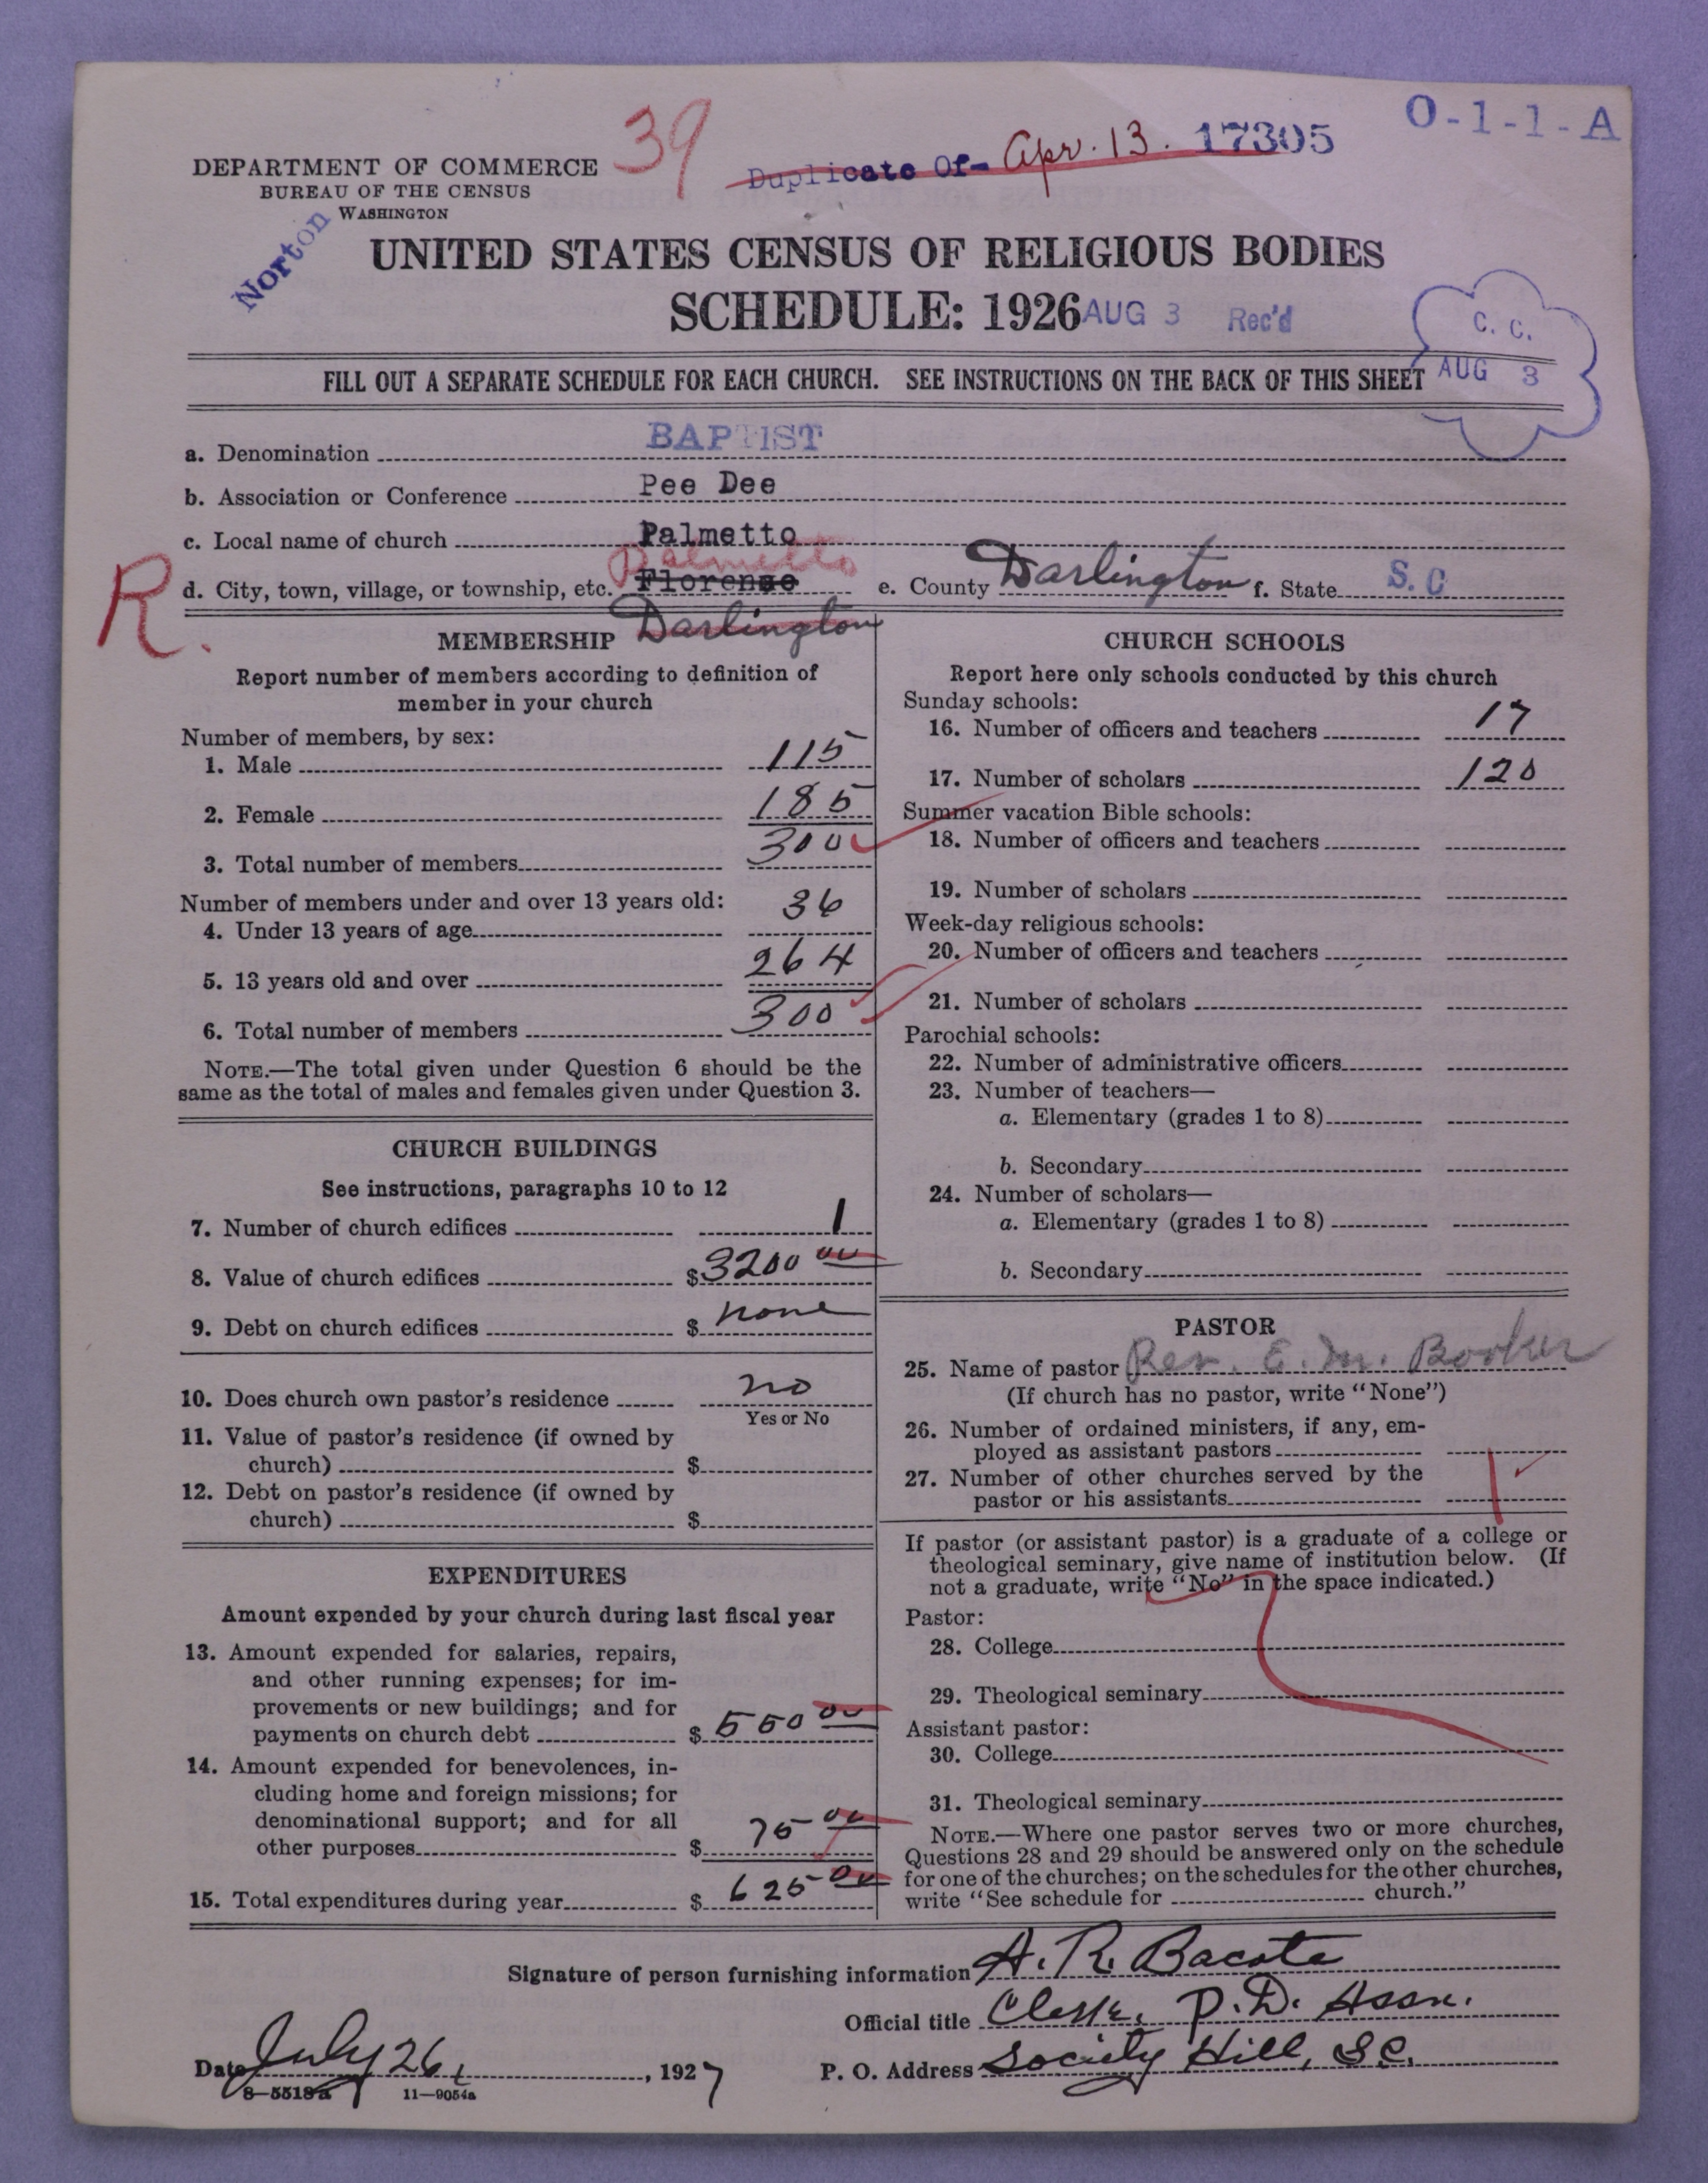 39
Duplicate Of- Apr. 13. 17305
O-1-1-A
DEPARTMENT OF COMMERCE
BUREAU OF THE CENSUS
WASHINGTON
Norton
UNITED STATES CENSUS OF RELIGIOUS BODIES
SCHEDULE: 1926 AUG 3 Rec'd
C. C.
AUG 3
FILL OUT A SEPARATE SCHEDULE FOR EACH CHURCH. SEE INSTRUCTIONS ON THE BACK OF THIS SHEET
a. Denomination BAPTIST
b. Association or Conference Pee Dee
c. Local name of church Palmetto
Palmetto
R.
d. City, town, village, or township, etc. Florence e. County Darlington f. State S.C
Darlington
MEMBERSHIP
Report number of members according to definition of
member in your church
Number of members, by sex:
1. Male 115
2. Female 185
3. Total number of members 300
Number of members under and over 13 years old:
4. Under 13 years of age 36
5. 13 years old and over 264
6. Total number of members 300
NOTE.—The total given under Question 6 should be the
same as the total of males and females given under Question 3.
CHURCH BUILDINGS
See instructions, paragraphs 10 to 12
7. Number of church edifices 1
8. Value of church edifices $3200 00
9. Debt on church edifices $ none
10. Does church own pastor's residence no
Yes or No
11. Value of pastor's residence (if owned by
church) $
12. Debt on pastor's residence (if owned by
church) $
EXPENDITURES
Amount expended by your church during last fiscal year
13. Amount expended for salaries, repairs,
and other running expenses; for im-
provements or new buildings; and for
payments on church debt $ 550 00
14. Amount expended for benevolences, in-
cluding home and foreign missions; for
denominational support; and for all
other purposes $ 75 00
15. Total expenditures during year $ 625 00
CHURCH SCHOOLS
Report here only schools conducted by this church
Sunday schools:
16. Number of officers and teachers 17
17. Number of scholars 120
Summer vacation Bible schools:
18. Number of officers and teachers
19. Number of scholars
Week-day religious schools:
20. Number of officers and teachers
21. Number of scholars
Parochial schools:
22. Number of administrative officers
23. Number of teachers—
a. Elementary (grades 1 to 8)
b. Secondary
24. Number of scholars—
a. Elementary (grades 1 to 8)
b. Secondary
PASTOR
25. Name of pastor Rev. E. M. Booker
(If church has no pastor, write "None")
26. Number of ordained ministers, if any, em-
ployed as assistant pastors
27. Number of other churches served by the
pastor or his assistants 1
If pastor (or assistant pastor) is a graduate of a college or
theological seminary, give name of institution below. (If
not a graduate, write "No" in the space indicated.)
Pastor:
28. College
29. Theological seminary
Assistant pastor:
30. College
31. Theological seminary
NOTE.—Where one pastor serves two or more churches,
Questions 28 and 29 should be answered only on the schedule
for one of the churches; on the schedules for the other churches,
write "See schedule for church."
Signature of person furnishing information A. R. Bacote
Official title Clerk, P.D. Assn.
Date July 26, 1927 P. O. Address Society Hill, S.C.
8—5518a 11—9054a